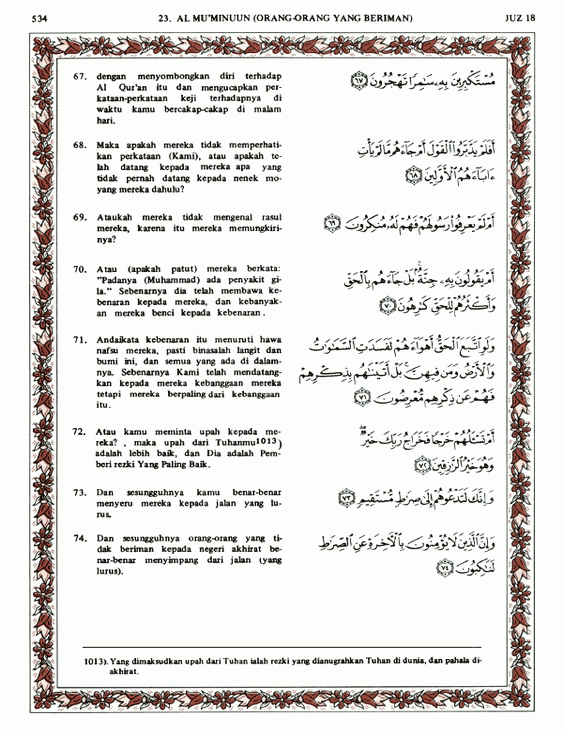 534 23. AL MU'MINUUN (ORANG-ORANG YANG BERIMAN) JUZ 18
67. dengan menyombongkan diri terhadap
Al Qur'an itu dan mengucapkan per-
kataan-perkataan keji terhadapnya di
waktu kamu bercakap-cakap di malam
hari.
مُسْتَكْبِرِينَ بِهِۦ سَٰمِرًا تَهْجُرُونَ ٦٧
68. Maka apakah mereka tidak memperhati-
kan perkataan (Kami), atau apakah te-
lah datang kepada mereka apa yang
tidak pernah datang kepada nenek mo-
yang mereka dahulu?
أَفَلَمْ يَدَّبَّرُوا۟ ٱلْقَوْلَ أَمْ جَآءَهُم مَّا لَمْ يَأْتِ
ءَابَآءَهُمُ ٱلْأَوَّلِينَ ٦٨
69. Ataukah mereka tidak mengenal rasul
mereka, karena itu mereka memungkiri-
nya?
أَمْ لَمْ يَعْرِفُوا۟ رَسُولَهُمْ فَهُمْ لَهُۥ مُنكِرُونَ ٦٩
70. Atau (apakah patut) mereka berkata:
"Padanya (Muhammad) ada penyakit gi-
la." Sebenarnya dia telah membawa ke-
benaran kepada mereka, dan kebanyak-
an mereka benci kepada kebenaran.
أَمْ يَقُولُونَ بِهِۦ جِنَّةٌۢ ۚ بَلْ جَآءَهُم بِٱلْحَقِّ
وَأَكْثَرُهُمْ لِلْحَقِّ كَٰرِهُونَ ٧٠
71. Andaikata kebenaran itu menuruti hawa
nafsu mereka, pasti binasalah langit dan
bumi ini, dan semua yang ada di dalam-
nya. Sebenarnya Kami telah mendatang-
kan kepada mereka kebanggaan mereka
tetapi mereka berpaling dari kebanggaan
itu.
وَلَوِ ٱتَّبَعَ ٱلْحَقُّ أَهْوَآءَهُمْ لَفَسَدَتِ ٱلسَّمَٰوَٰتُ
وَٱلْأَرْضُ وَمَن فِيهِنَّ ۚ بَلْ أَتَيْنَٰهُم بِذِكْرِهِمْ
فَهُمْ عَن ذِكْرِهِم مُّعْرِضُونَ ٧١
72. Atau kamu meminta upah kepada me-
reka? , maka upah dari Tuhanmu1013)
adalah lebih baik, dan Dia adalah Pem-
beri rezki Yang Paling Baik.
أَمْ تَسْـَٔلُهُمْ خَرْجًا فَخَرَاجُ رَبِّكَ خَيْرٌ ۖ
وَهُوَ خَيْرُ ٱلرَّٰزِقِينَ ٧٢
73. Dan sesungguhnya kamu benar-benar
menyeru mereka kepada jalan yang lu-
rus.
وَإِنَّكَ لَتَدْعُوهُمْ إِلَىٰ صِرَٰطٍ مُّسْتَقِيمٍ ٧٣
74. Dan sesungguhnya orang-orang yang ti-
dak beriman kepada negeri akhirat be-
nar-benar menyimpang dari jalan (yang
lurus).
وَإِنَّ ٱلَّذِينَ لَا يُؤْمِنُونَ بِٱلْـَٔاخِرَةِ عَنِ ٱلصِّرَٰطِ
لَنَٰكِبُونَ ٧٤
1013). Yang dimaksudkan upah dari Tuhan ialah rezki yang dianugrahkan Tuhan di dunia, dan pahala di-
akhirat.